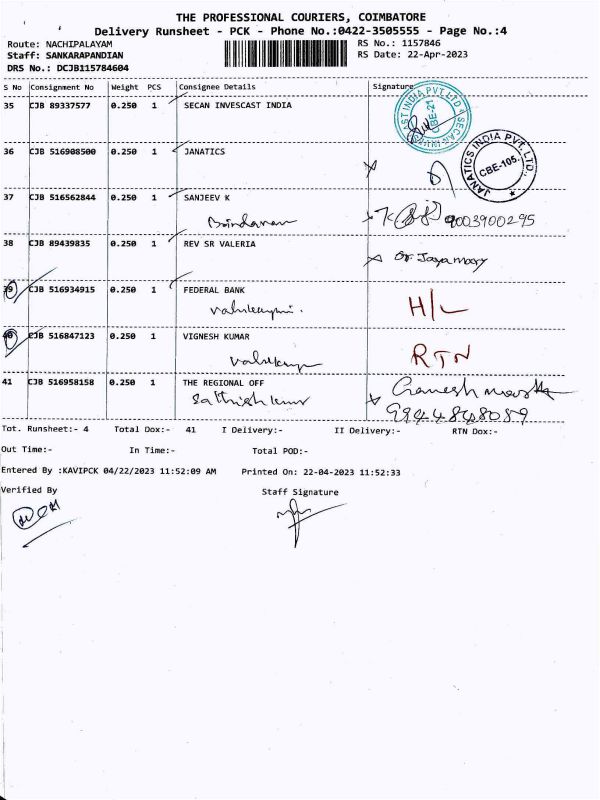 THE PROFESSIONAL COURIERS, COIMBATORE
Delivery Runsheet - PCK - Phone No.:0422-3505555 - Page No.:4
Route: NACHIPALAYAM RS No.: 1157846
Staff: SANKARAPANDIAN RS Date: 22-Apr-2023
DRS No.: DCJB115784604
S No Consignment No Weight PCS Consignee Details Signature
35 CJB 89337577 0.250 1 SECAN INVESCAST INDIA
36 CJB 516908500 0.250 1 JANATICS
JANATICS INDIA PVT. LTD.
CBE-105.
37 CJB 516562844 0.250 1 SANJEEV K
9003900295
38 CJB 89439835 0.250 1 REV SR VALERIA
Sr. Jayamary
39 CJB 516934915 0.250 1 FEDERAL BANK
H/L
40 CJB 516847123 0.250 1 VIGNESH KUMAR
RTN
41 CJB 516958158 0.250 1 THE REGIONAL OFF
Sathish kumar
9944848089
Tot. Runsheet:- 4 Total Dox:- 41 I Delivery:- II Delivery:- RTN Dox:-
Out Time:- In Time:- Total POD:-
Entered By :KAVIPCK 04/22/2023 11:52:09 AM Printed On: 22-04-2023 11:52:33
Verified By Staff Signature